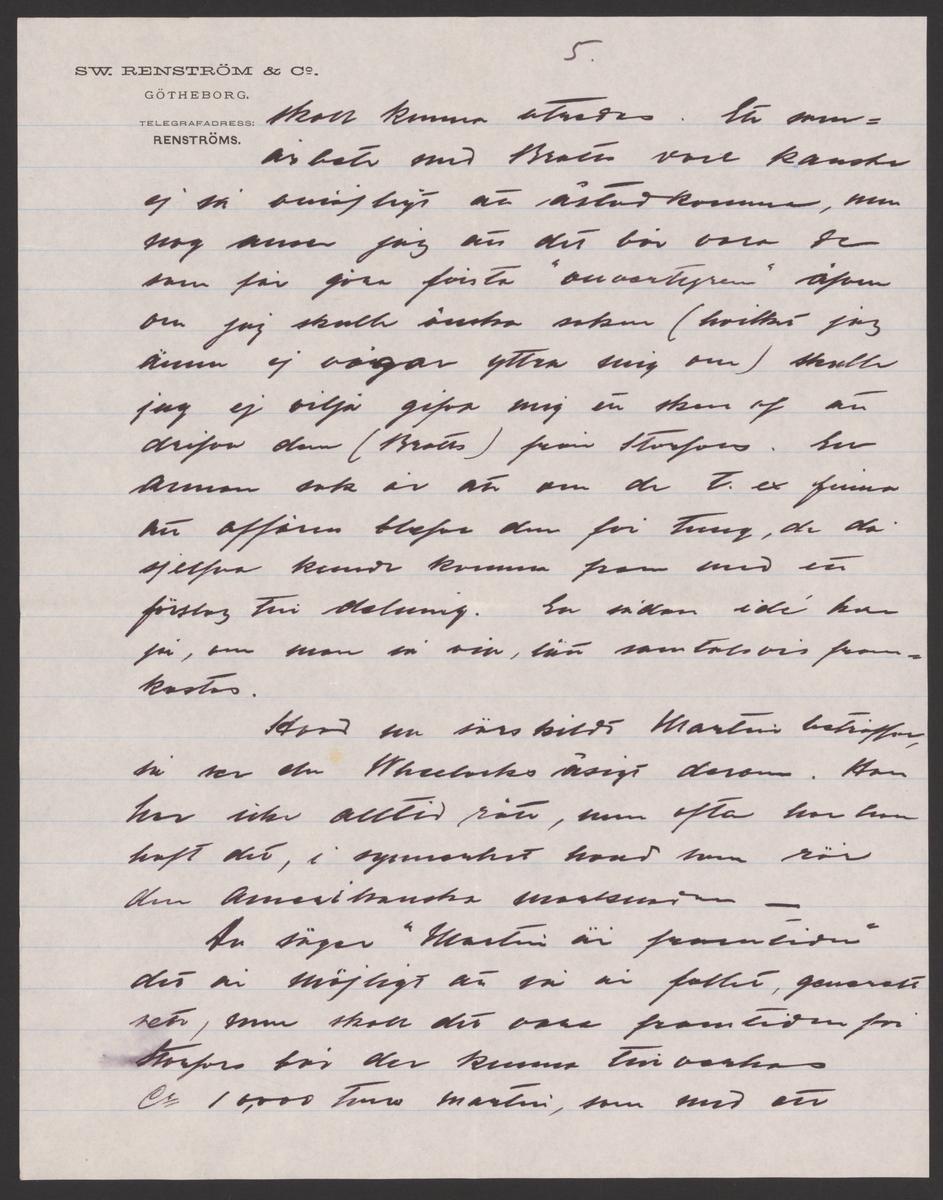 5.
SW. RENSTRÖM & Co.
GÖTHEBORG.
TELEGRAFADRESS:
RENSTRÖMS.
skall kunna utredas. Ett sam=
arbete med Bratts vore kanske
ej så omöjligt att åstadkomma, men
nog anser jag att det bör vara de
som får göra första "ouvertyren" äfven
om jag skulle önska saken (hvilket jag
ännu ej vågar yttra mig om) skulle
jag ej vilja gifva mig en sken af att
drifva dem (Bratts) från Storfors. En
annan sak är att om de t. ex finna
att affären blefve dem för tung, de då
sjelfva kunde komma fram med ett
förslag till delning. En sådan idé kan
ju, om man så vill, lätt samtalsvis fram=
kastas.
Hvad nu särskildt Martin beträffar,
så ser du Wheelocks åsigt derom. Han
har icke alltid rätt, men ofta har han
haft det, i synnerhet hvad som rör
den Amerikanska marknaden —
Du säger "Martin är framtiden"
det är möjligt att så är fallet, generelt
sett, men skall det vara framtiden för
Storfors bör der kunna tillverkas
Ca 10,000 tons martin, som med ett